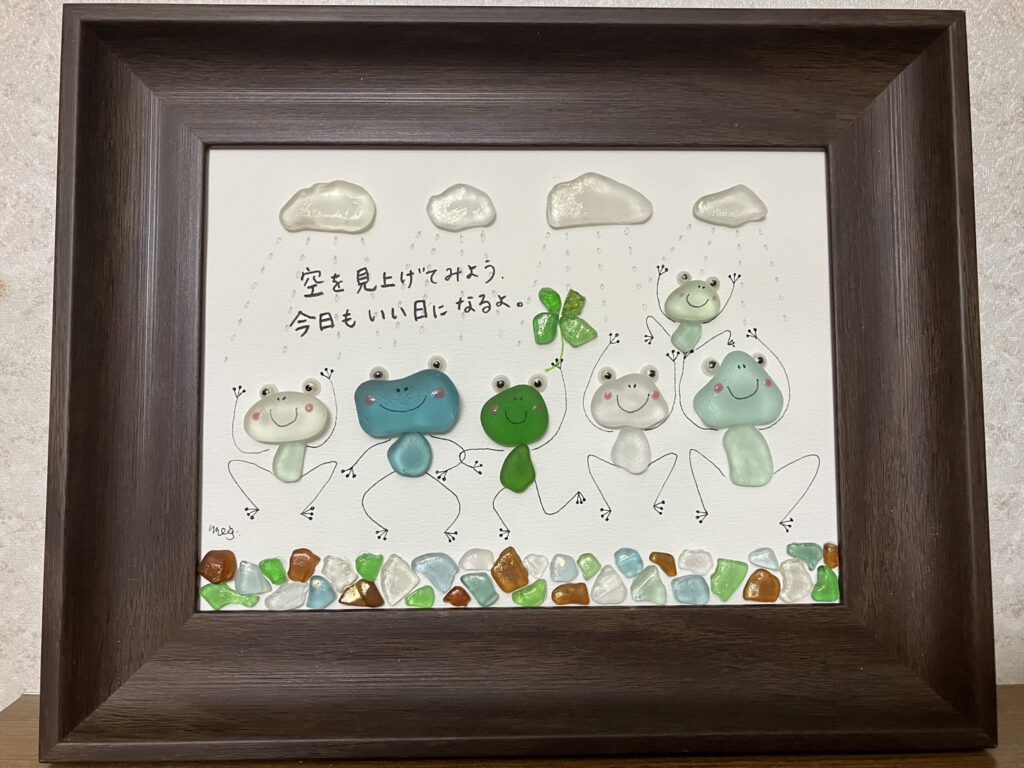 空を見上げてみよう.
今日もいい日になるよ。
meg.